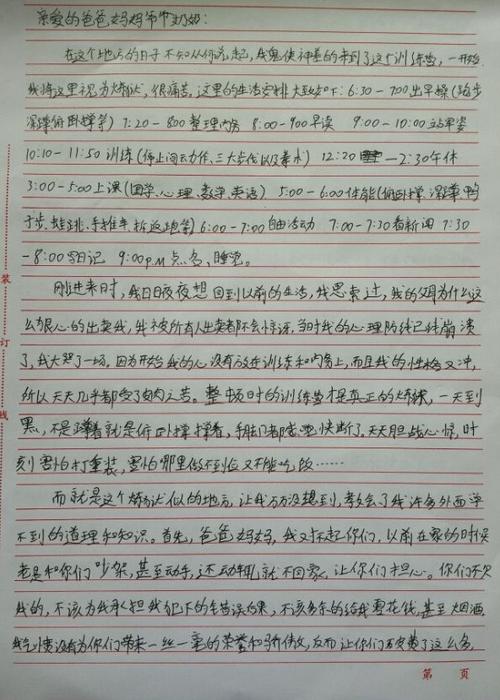 亲爱的爸爸妈妈爷爷奶奶:
在这个地方的日子不知从何说起,我鬼使神差的来到了这个训练营,一开始
我将这里视为炼狱,很痛苦,这里的生活安排大致如下:6:30-7:00出早操(跑步
深蹲俯卧撑等)7:20-8:00整理内务 8:00-9:00早读 9:00-10:00站军姿
10:10-11:50训练(停止间动作、三大步伐以及拳术)12:20-2:30午休
3:00-5:00上课(国学、心理、数学、英语)5:00-6:00体能(俯卧撑 深蹲 鸭
子步、蛙跳、手推车、折返跑等)6:00-7:00自由活动 7:00-7:30看新闻 7:30
-8:00写日记 9:00p.m点名、睡觉。
刚进来时,我日日夜夜想回到以前的生活,我思索过,我的父母为什么这
么狠心的出卖我,我被所有人出卖都不会惊讶,当时我的心理防线已经崩溃
了,我大哭了一场。因为开始我的心没有放在训练和内务上,而且我的性格又冲,
所以天天几乎都受了皮肉之苦。整顿时的训练营才是真正的炼狱,一天到
黑,不是蹲着就是俯卧撑撑着,手脚都感觉快断了。天天胆战心惊,时
刻害怕打重装,害怕哪里做不到位又不能吃饭……
而就是这个炼狱似的地方,让我万万没想到,教会了我许多外面学
不到的道理和知识。首先,爸爸妈妈,我对不起你们,以前在家的时候
老是和你们吵架,甚至动手,还动不动就不回家,让你们担心。你们不欠
我的,不该为我承担我犯下的错误后果,不该多余的给我零花钱,甚至烟酒
钱,没有为你们带来一丝一毫的荣誉和骄傲,反而让你们浪费了这么多,
装
订
线
第 页